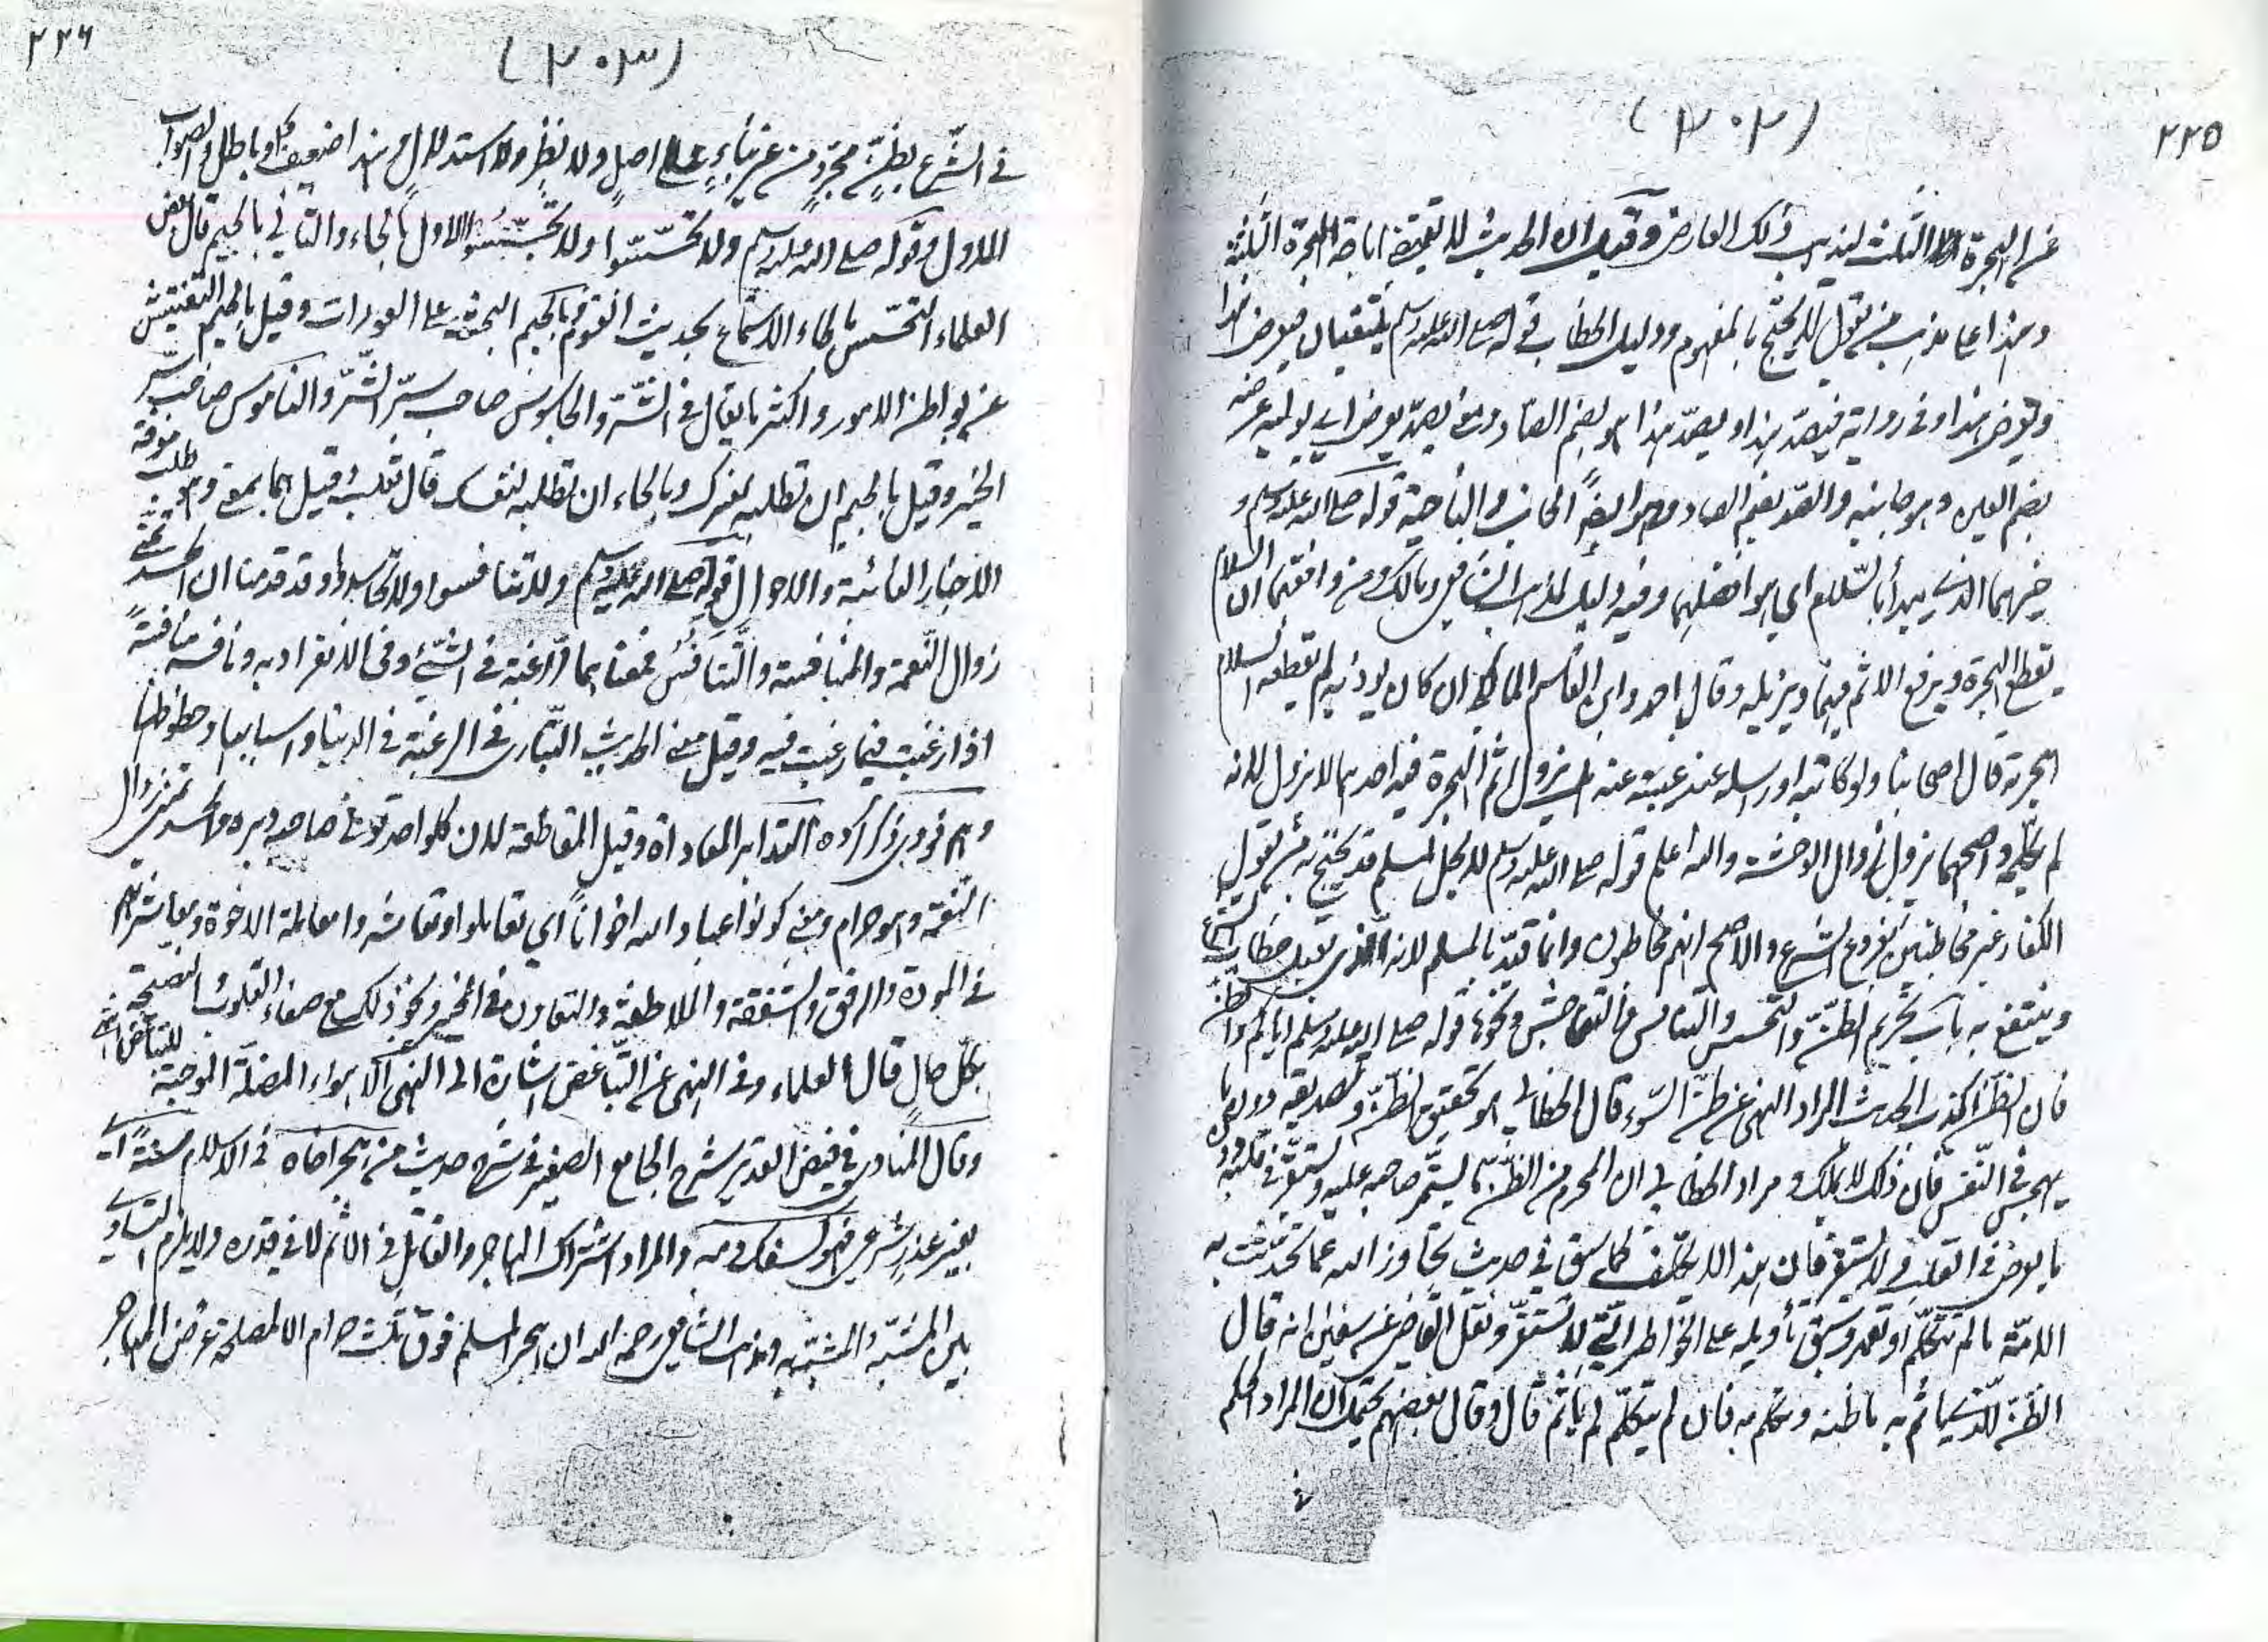 ٢٢٥
(٣٠٢)
عن الهجرة الثلث ليذهب ذلك العارض وقيل ان الحديث لا يقتضى اباحة الهجرة الثلثة
وهذا على مذهب من يقول لا يحتج بالمفهوم ودليل الخطاب قوله صلى الله عليه وسلم يلتقيان فيعرض هذا
ويعرض هذا وفى رواية فيصد هذا ويصد هذا هو بضم الصاد ومعنى يصد يعرض اى يوليه عرضه
بضم العين وهو جانبه والصد بضم الصاد وهو ايضاً الجانب والناحية قوله صلى الله عليه وسلم و
خيرهما الذى يبدأ بالسلام اى هو افضلهما وفيه دليل لمذهب الشافعى ومالك ومن وافقهما ان السلام
يقطع الهجرة ويرفع الاثم فيهما ويزيله وقال احمد وابن القاسم المالكى ان كان يوذيه لم يقطعه السلام
هجرته قال اصحابنا ولو كاتبه او راسله عند غيبته عنه هل يزول اثم الهجرة فيه احدهما لا يزول لانه
لم يكلمه واصحهما يزول لزوال الوحشة والله اعلم قوله صلى الله عليه وسلم لا يحل لمسلم قد يحتج به من يقول
الكفار غير مخاطبين بفروع الشرع والاصح انهم مخاطبون وانما قيد بالمسلم لانه الذى يقبل خطاب الشرع
وينتفع به باب تحريم الظن والتجسس والتنافس والتناجش ونحوها قوله صلى الله عليه وسلم اياكم والظن
فان الظن اكذب الحديث المراد النهى عن ظن السوء قال الخطابى هو تحقيق الظن وتصديقه دون ما
يهجس فى النفس فان ذلك لا يملك ومراد الخطابى ان المحرم من الظن ما يستمر صاحبه عليه ويستقر فى قلبه دون
ما يعرض فى القلب ولا يستقر فان هذا لا يكلف كما سبق فى حديث تجاوز الله عما تحدثت به
الامة ما لم تتكلم او تعمد وسبق تأويله على الخواطر التى لا تستقر ونقل القاضى عن سفين انه قال
الظن الذى ياثم به ما ظنه وتكلم به فان لم يتكلم لم ياثم قال وقال بعضهم يحتمل ان المراد الحكم
٢٢٦
(٣٠٣)
فى الشرع بظن مجرد من غير بناء على اصل ولا نظر ولا استدلال وهذا ضعيف او باطل والصواب
الاول وقوله صلى الله عليه وسلم ولا تحسسوا ولا تجسسوا الاول بالحاء والثانى بالجيم قال بعض
العلماء التحسس بالحاء الاستماع لحديث القوم وبالجيم البحث عن العورات وقيل بالجيم التفتيش
عن بواطن الامور واكثر ما يقال فى الشر والجاسوس صاحب سر الشر والناموس صاحب سر
الخير وقيل بالجيم ان تطلبه لغيرك وبالحاء ان تطلبه لنفسك قال ثعلب وقيل هما بمعنى وهو طلب معرفة
الاخبار الغائبة والاحوال قوله صلى الله عليه وسلم ولا تنافسوا ولا تحاسدوا وقد قدمنا ان الحسد تمنى
زوال النعمة والمنافسة والتنافس فمعناهما الرغبة فى الشئ وفى الانفراد به ونافسه منافسةً
اذا رغبت فيما رغبت فيه وقيل معنى الحديث التبارى فى الرغبة فى الدنيا واسبابها وحظوظها
التدابر المعاداة وقيل المقاطعة لان كل واحد يولى صاحبه دبره والحسد تمنى زوال
النعمة وهو حرام ومعنى كونوا عباد الله اخواناً اى تعاملوا وتعاشروا معاملة الاخوة ومعاشرتهم
فى المودة والرفق والشفقة والملاطفة والتعاون فى الخير ونحو ذلك مع صفاء القلوب والنصيحة
بكل حال قال العلماء وفى النهى عن التباغض اشارة الى النهى الاهواء المضلة الموجبة للتباغض انتهى
وقال المناوى فى فيض القدير شرح الجامع الصغير فى شرح حديث من هجر اخاه فى الاسلام سنةً اى
بغير عذر شرعى فهو كسفك دمه والمراد اشتراك الهاجر والقاتل فى الاثم لا فى قدره ولا يلزم التساوى
بين المشبه والمشبه به ومذهب الشافعى رحمه الله ان هجر المسلم فوق ثلث حرام الا لمصلحة عرض المهاجر